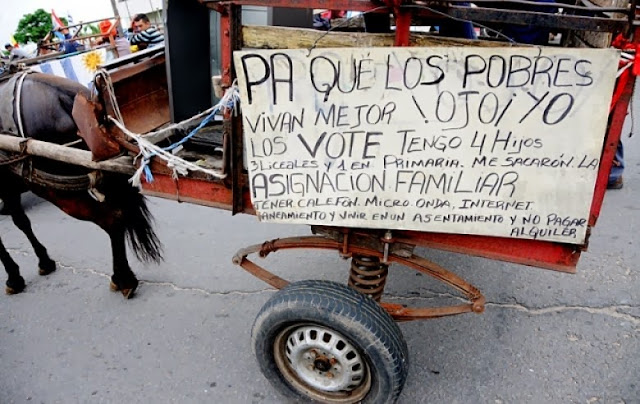 PA QUÉ LOS POBRES
VIVAN MEJOR ! OJO ¡ YO
LOS VOTE TENGO 4 HIJOS
3 LICEALES Y 1 EN PRIMARIA. ME SACARÓN. LA
ASIGNACION FAMILIAR
TENER. CALEFON. MICRO. ONDA, INTERNET
SANEAMIENTO Y VIVIR EN UN ASENTAMIENTO Y NO PAGAR
ALQUILER